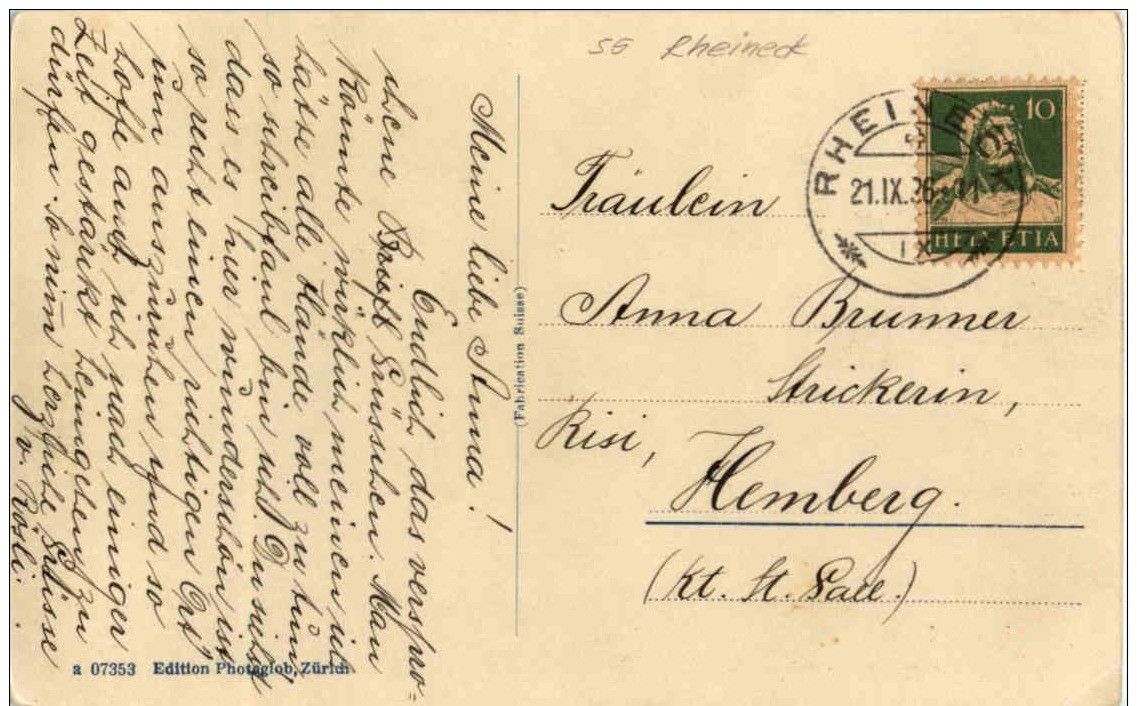 SG Rheineck
RHEINECK
21.IX.36-11
IX
10
HELVETIA
Fräulein
Anna Brunner
Strickerin,
Risi,
Hemberg.
(Kt. St. Gall.)
(Fabrication Suisse)
Meine liebe Anna!
Endlich das verspro-
chene Grüsschen. Man
könnte wirklich meinen ich
hätte alle Hände voll zu tun,
so schreibfaul bin ich. Du siehst
dass es hier wunderschön ist
so recht einen richtigen Ort
um auszuruhen und so
hoffe auch ich nach einiger
Zeit gestärckt heimgehen zu
dürfen. So nim̄ herzliche Grüsse
v. Rösli.
a 07353 Edition Photoglob, Zürich